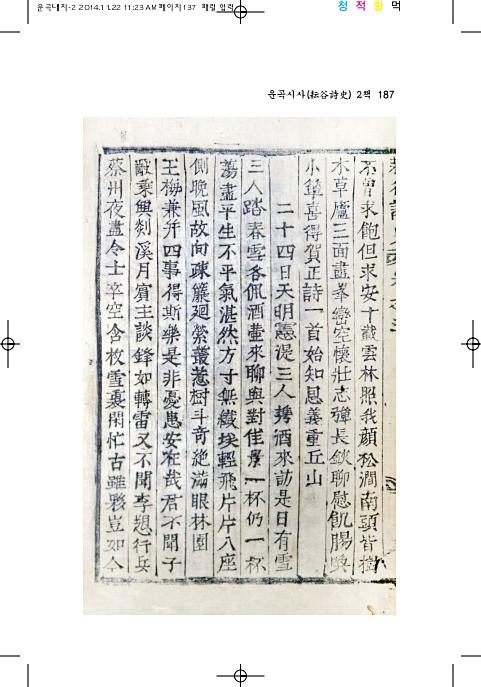 운곡대지-2 2014.11.22 11:23 AM 페이지137
청 적 황 먹
운곡시사(耘谷詩史) 2책 187
不曾求飽但求安十載雲林照我顔松澗南頭皆樹
木草廬三面盡峯巒空懷壯志彈長鋏聊慰飢腸與
小簞喜得賀正詩一首始知恩義重丘山
二十四日天明憲湜三人携酒來訪是日有雪
三人踏春雪各佩酒壷來聊與對佳景一杯仍一杯
蕩盡平生不平氣湛然方寸無纖埃輕飛片片入座
側晚風故向疎簾廻縈叢惹樹斗奇絶滿眼林園
玉梅兼幷四事得斯樂是非憂患安在哉君不聞子
猷乘興剡溪月賓主談鋒如轉雷又不聞李愬行兵
蔡州夜盡令士卒空含枚雪裏閑忙古雖夥豈如今